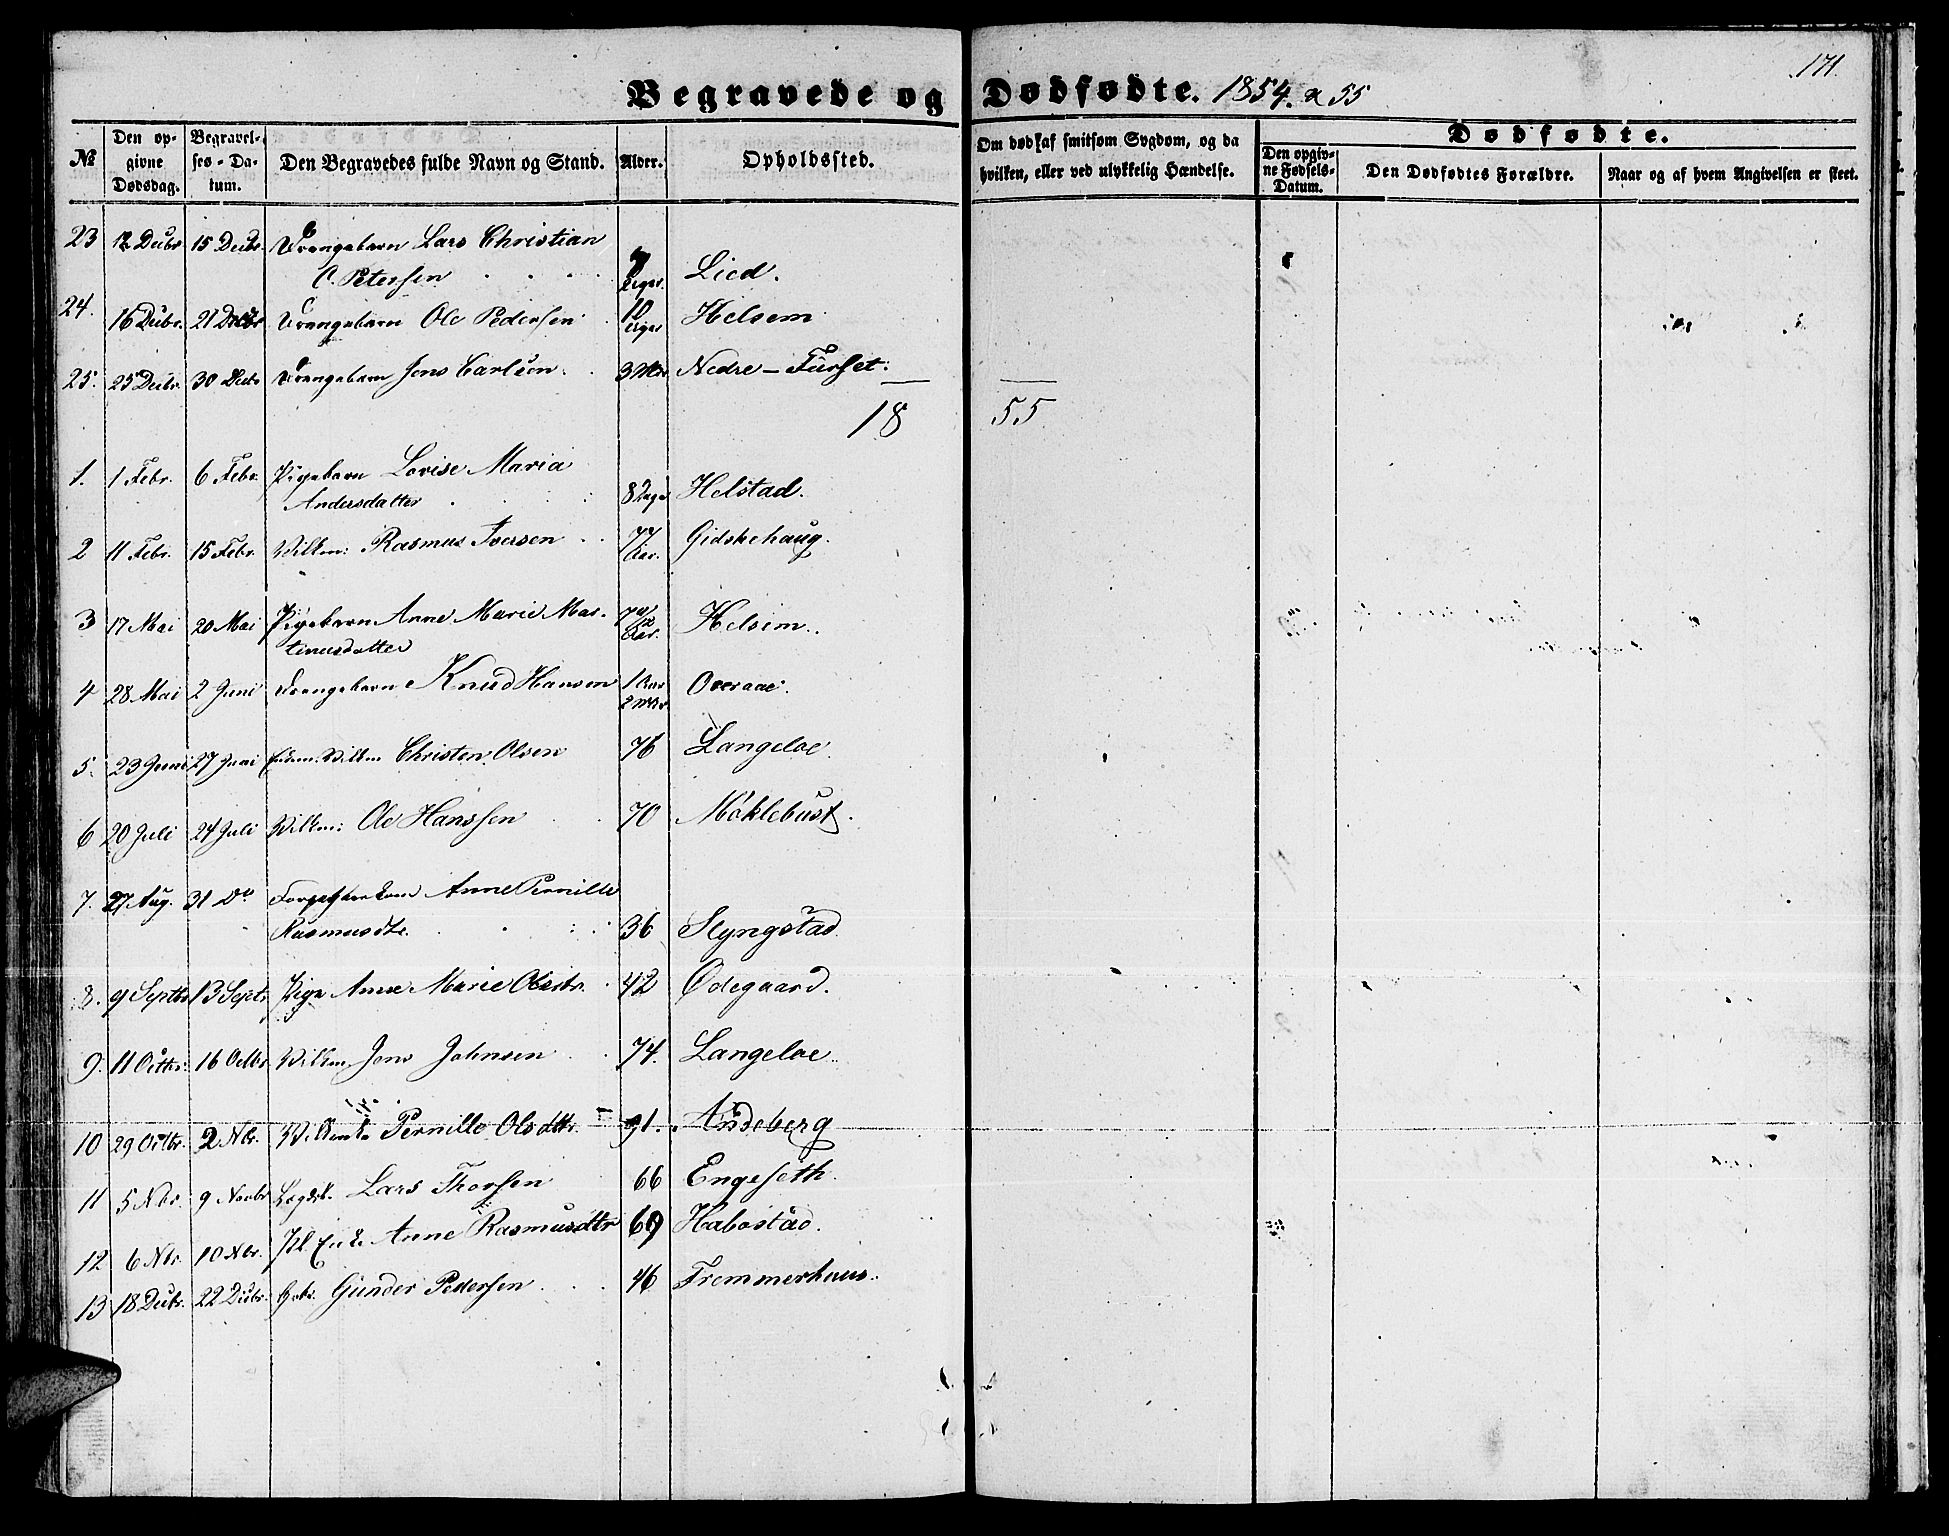 171.
Begravede og Dødfødte. 1854. & 55
№ Den opgivne Dødsdag. Begravelses-Datum. Den Begravedes fulde Navn og Stand. Alder. Opholdssted. Om død af smitsom Sygdom, og da hvilken, eller ved ulykkelig Hændelse. Dødfødte. Den opgivne Fødsels-Datum. Den Dødfødtes Forældre. Naar og af hvem Angivelsen er skeet.
23 12 Decbr 15 Decbr. Drengebarn Lars Christian
C. Petersen 7 Uger. Lied.
24. 16 Decbr. 21 Decbr Drengebarn Ole Pedersen 10 Uger Helsem
25. 25 Decbr. 30 Decbr Drengebarn Jens Carlsen. 3 Mdr. Nedre-Furset.
18 55
1. 1 Febr. 6 Febr. Pigebarn Lovise Maria
Andersdatter 8 Dage Helstad.
2 11 Febr. 15 Febr. Wilkm: Rasmus Iversen 77 Aar. Gidskehaug.
3 17 Mai 20 Mai Pigebarn Anne Marie Mar-
tinusdatter Aar. Helsim.
4 28 Mai 2 Juni Drengebarn Knud Hansen 1 Aar 2 Mdr. Overaae.
5. 23 Juni 27 Juni Wilkm Christen Olsen 76 Langeloe
6 20 Juli 24 Juli Wilkm: Ole Hanssen 70 Møklebust.
7. 27 Aug. 31 Do Anne Pernille
Rasmusdtr. 36 Slyngstad
8. 9 Septbr 13 Septr. Pige Anne Marie Olsdtr. 42 Ødegaard.
9. 11 Octbr. 16 Octbr Wilkm Jens Johnsen 74. Langeloe.
10 29 Octbr. 2 Nbr. Pernille Olsdtr. 91. Andeberg
11 5 Nbr. 9 Novbr Lægdsl. Lars Thorsen 66 Engeseth.
12 6 Nbr. 10 Nbr. Anne Rasmusdtr 69 Habostad.
13 18 Decbr. 22 Decbr. Gunder Pedersen 46 Fremmerhaus.